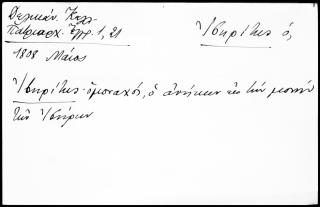 Δελικάν. Κυλ.
Πατριαρχ. Ἔγγρ. 1, 21
1808 Μάιος
Ἰβηρίτης ὁ,
Ἰβηρίτης· ὁ μοναχός, ὁ ἀνήκων εἰς τὴν μονὴν
τῶν Ἰβήρων